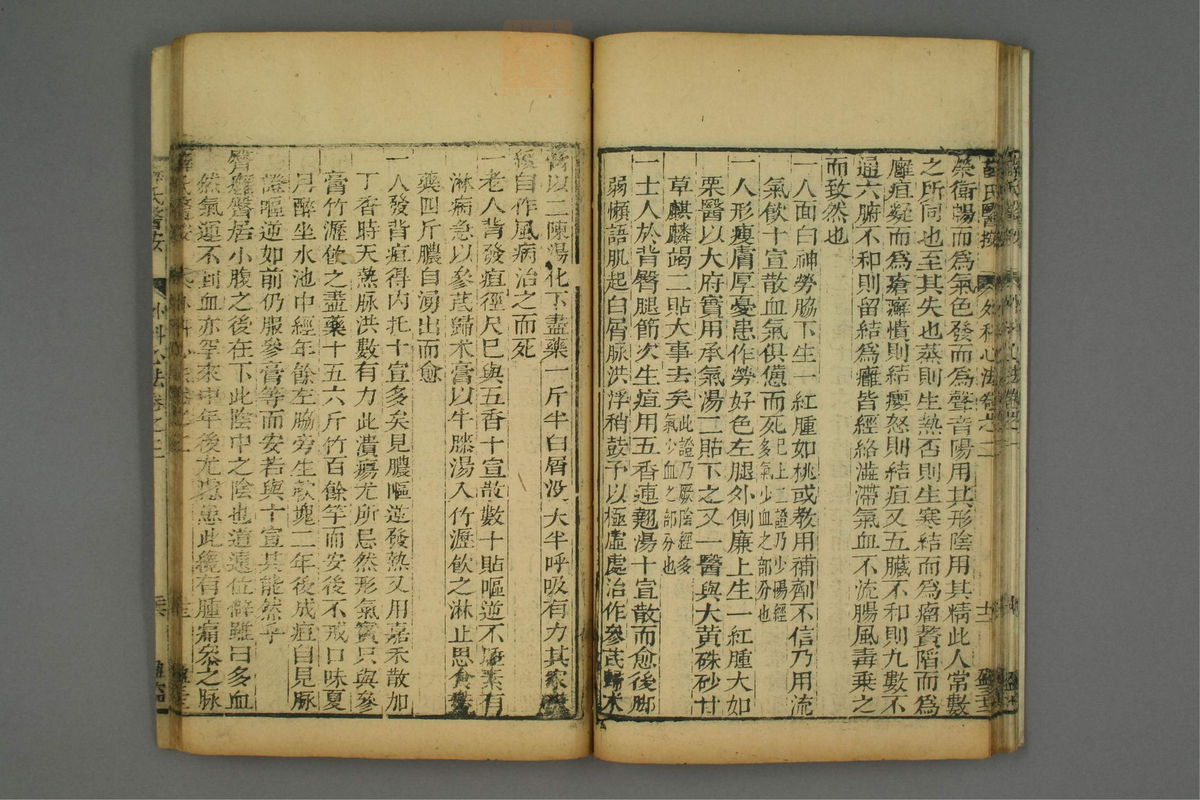 薛氏醫按 外科心法卷之二
榮衛暢而爲氣色發而爲聲音陽用其形陰用其精此人常數
之所同也至其失也蒸則生熱否則生寒結而爲瘤贅陷而爲
癰疽凝而爲瘡癬憤則結癭怒則結疽又五臟不和則九竅不
通六腑不和則留結爲癰皆經絡濇滯氣血不流腸風毒乗之
而致然也
一人面白神勞脇下生一紅腫如桃或教用補劑不信乃用流
氣飲十宣散血氣俱憊而死已上二證乃少陽經
多氣少血之部分也
一人形瘦膚厚憂患作勞好色左腿外側廉上生一紅腫大如
栗醫以大府實用承氣湯二貼下之又一醫與大黄硃砂甘
草麒麟竭二貼大事去矣此證乃厥陰經多
氣少血之部分也
一士人於背臀腿節次生疽用五香連翹湯十宣散而愈後脚
弱懶語肌起白屑脉洪浮稍鼓予以極虛處治作參芪歸术
膏以二陳湯化下盡藥一斤半白屑没大半呼吸有力其家
自作風病治之而死
一老人背發疽徑尺已與五香十宣散數十貼嘔逆不睡素有
淋病急以參芪歸术膏以牛膝湯入竹瀝飲之淋止思食
藥四斤膿自湧出而愈
一人發背疽得内托十宣多矣見膿嘔逆發熱又用嘉禾散加
丁香時天熱脉洪數有力此潰瘍尤所忌然形氣實只與參
膏竹瀝飲之盡藥十五六斤竹百餘竿而安後不戒口味夏
月醉坐水池中經年餘左脇旁生軟塊二年後成疽自見脉
證嘔逆如前仍服參膏等而安若與十宣其能然乎
臀癰臀居小腹之後在下此陰中之陰也道遠位僻雖曰多血
然氣運不到血亦罕來中年後尤慮患此纔有腫痛參之脉
薛氏醫按 外科心法卷之二